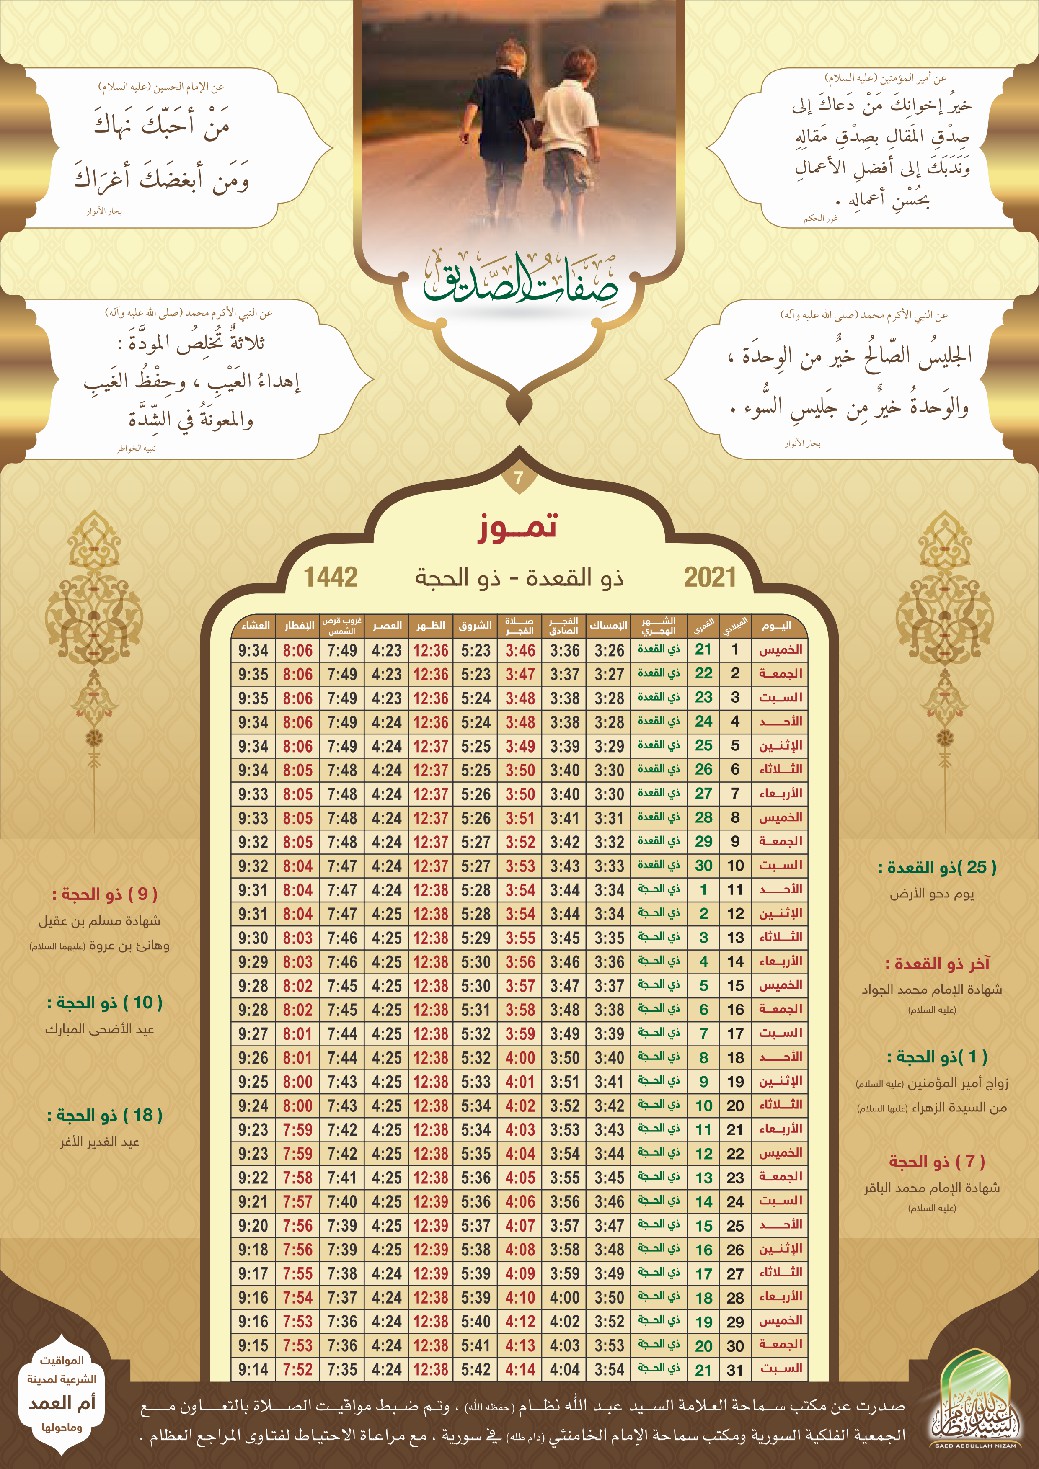 عن أمير المؤمنين (عليه السلام)
خيرُ إخوانِكَ مَنْ دَعاكَ إلى
صِدْقِ المَقالِ بصِدْقِ مَقالِهِ
وَنَدَبَكَ إلى أفضلِ الأعمالِ
بحُسْنِ أعمالِه .
غرر الحكم
عن الإمام الحسين (عليه السلام)
مَنْ أحَبّكَ نَهاكَ
وَمَن أبغضَكَ أغرَاكَ
بحار الأنوار
صفات الصديق
عن النبي الأكرم محمد (صلى الله عليه وآله)
الجليسُ الصّالحُ خيرٌ من الوِحدَة ،
والوَحدةُ خيرٌ مِن جَليسِ السُّوء .
بحار الأنوار
عن النبي الأكرم محمد (صلى الله عليه وآله)
ثلاثةٌ تُخلِصُ المودَّةَ :
إهداءُ العَيْبِ ، وحِفْظُ الغَيبِ
والمعونَةُ في الشِّدَّة
تنبيه الخواطر
7
تمـــوز
2021 ذو القعدة - ذو الحجة 1442
اليـوم الميلادي القمري الشـــهر الهجري الإمساك الفجـر الصادق صـلاة الفجـر الشروق الظـهر العصـر غروب قرص الشمس الإفطار العشاء
الخميس 1 21 ذي القعدة 3:26 3:36 3:46 5:23 12:36 4:23 7:49 8:06 9:34
الجمعـة 2 22 ذي القعدة 3:27 3:37 3:47 5:23 12:36 4:23 7:49 8:06 9:35
السـبت 3 23 ذي القعدة 3:28 3:38 3:48 5:24 12:36 4:23 7:49 8:06 9:35
الأحــد 4 24 ذي القعدة 3:28 3:38 3:48 5:24 12:36 4:24 7:49 8:06 9:34
الإثنـين 5 25 ذي القعدة 3:29 3:39 3:49 5:25 12:37 4:24 7:49 8:06 9:34
الثـلاثاء 6 26 ذي القعدة 3:30 3:40 3:50 5:25 12:37 4:24 7:48 8:05 9:34
الأربـعاء 7 27 ذي القعدة 3:30 3:40 3:50 5:26 12:37 4:24 7:48 8:05 9:33
الخميس 8 28 ذي القعدة 3:31 3:41 3:51 5:26 12:37 4:24 7:48 8:05 9:33
الجمعـة 9 29 ذي القعدة 3:32 3:42 3:52 5:27 12:37 4:24 7:48 8:05 9:32
السـبت 10 30 ذي القعدة 3:33 3:43 3:53 5:27 12:37 4:24 7:47 8:04 9:32
الأحــد 11 1 ذي الحـجة 3:34 3:44 3:54 5:28 12:38 4:24 7:47 8:04 9:31
الإثنـين 12 2 ذي الحـجة 3:34 3:44 3:54 5:28 12:38 4:25 7:47 8:04 9:31
الثـلاثاء 13 3 ذي الحـجة 3:35 3:45 3:55 5:29 12:38 4:25 7:46 8:03 9:30
الأربـعاء 14 4 ذي الحـجة 3:36 3:46 3:56 5:30 12:38 4:25 7:46 8:03 9:29
الخميس 15 5 ذي الحـجة 3:37 3:47 3:57 5:30 12:38 4:25 7:45 8:02 9:28
الجمعـة 16 6 ذي الحـجة 3:38 3:48 3:58 5:31 12:38 4:25 7:45 8:02 9:28
السـبت 17 7 ذي الحـجة 3:39 3:49 3:59 5:32 12:38 4:25 7:44 8:01 9:27
الأحــد 18 8 ذي الحـجة 3:40 3:50 4:00 5:32 12:38 4:25 7:44 8:01 9:26
الإثنـين 19 9 ذي الحـجة 3:41 3:51 4:01 5:33 12:38 4:25 7:43 8:00 9:25
الثـلاثاء 20 10 ذي الحـجة 3:42 3:52 4:02 5:34 12:38 4:25 7:43 8:00 9:24
الأربـعاء 21 11 ذي الحـجة 3:43 3:53 4:03 5:34 12:38 4:25 7:42 7:59 9:23
الخميس 22 12 ذي الحـجة 3:44 3:54 4:04 5:35 12:38 4:25 7:42 7:59 9:23
الجمعـة 23 13 ذي الحـجة 3:45 3:55 4:05 5:36 12:38 4:25 7:41 7:58 9:22
السـبت 24 14 ذي الحـجة 3:46 3:56 4:06 5:36 12:39 4:25 7:40 7:57 9:21
الأحــد 25 15 ذي الحـجة 3:47 3:57 4:07 5:37 12:39 4:25 7:39 7:56 9:20
الإثنـين 26 16 ذي الحـجة 3:48 3:58 4:08 5:38 12:39 4:25 7:39 7:56 9:18
الثـلاثاء 27 17 ذي الحـجة 3:49 3:59 4:09 5:39 12:39 4:24 7:38 7:55 9:17
الأربـعاء 28 18 ذي الحـجة 3:50 4:00 4:10 5:39 12:38 4:24 7:37 7:54 9:16
الخميس 29 19 ذي الحـجة 3:52 4:02 4:12 5:40 12:38 4:24 7:36 7:53 9:16
الجمعـة 30 20 ذي الحـجة 3:53 4:03 4:13 5:41 12:38 4:24 7:36 7:53 9:15
السـبت 31 21 ذي الحـجة 3:54 4:04 4:14 5:42 12:38 4:24 7:35 7:52 9:14
( 25 )ذو القعدة :
يوم دحو الأرض
آخر ذو القعدة :
شهادة الإمام محمد الجواد
(عليه السلام)
( 1 )ذو الحجة :
زواج أمير المؤمنين (عليه السلام)
من السيدة الزهراء (عليها السلام)
( 7 ) ذو الحجة
شهادة الإمام محمد الباقر
(عليه السلام)
( 9 ) ذو الحجة :
شهادة مسلم بن عقيل
وهانئ بن عروة (عليهما السلام)
( 10 ) ذو الحجة :
عيد الأضحى المبارك
( 18 ) ذو الحجة :
عيد الغدير الأغر
المواقيت
الشرعية لمدينة
أم العمد
وماحولها
صدرت عن مكتب سماحة العلامة السيد عبد الله نظـام (حفظه الله) ، وتم ضبـط مواقيـت الصـلاة بالتعـاون مـــع
الجمعية الفلكية السورية ومكتب سماحة الإمام الخامنئي (دام ظله) في سورية ، مع مراعاة الاحتياط لفتاوى المراجع العظام .
السيد عبدالله نظام
SAED ABDULLAH NIZAM